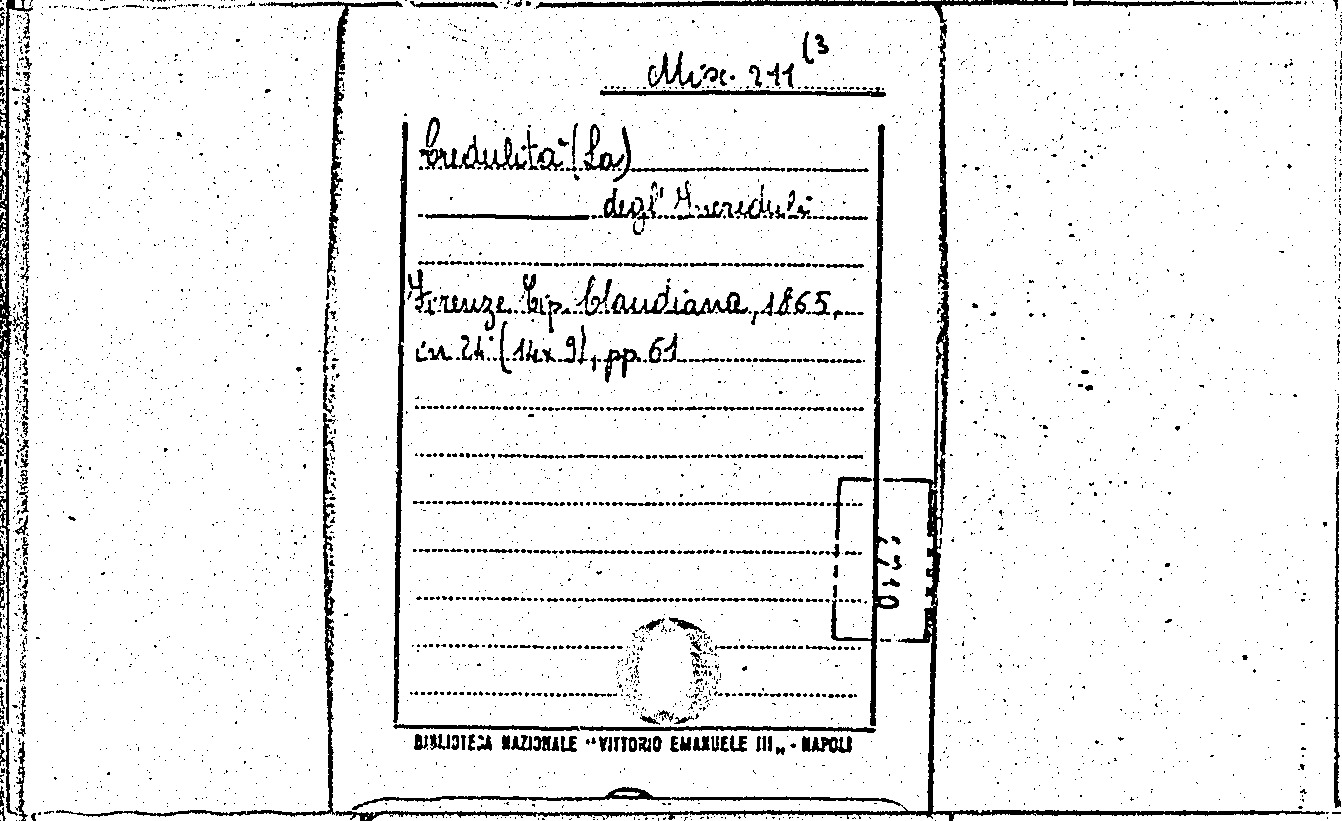 Misc. 211 (3
Credulità (La)
degl' Increduli
Firenze Tip. Claudiana, 1865,
in 24° (14x9), pp. 61
BIBLIOTECA NAZIONALE "VITTORIO EMANUELE III„ - NAPOLI